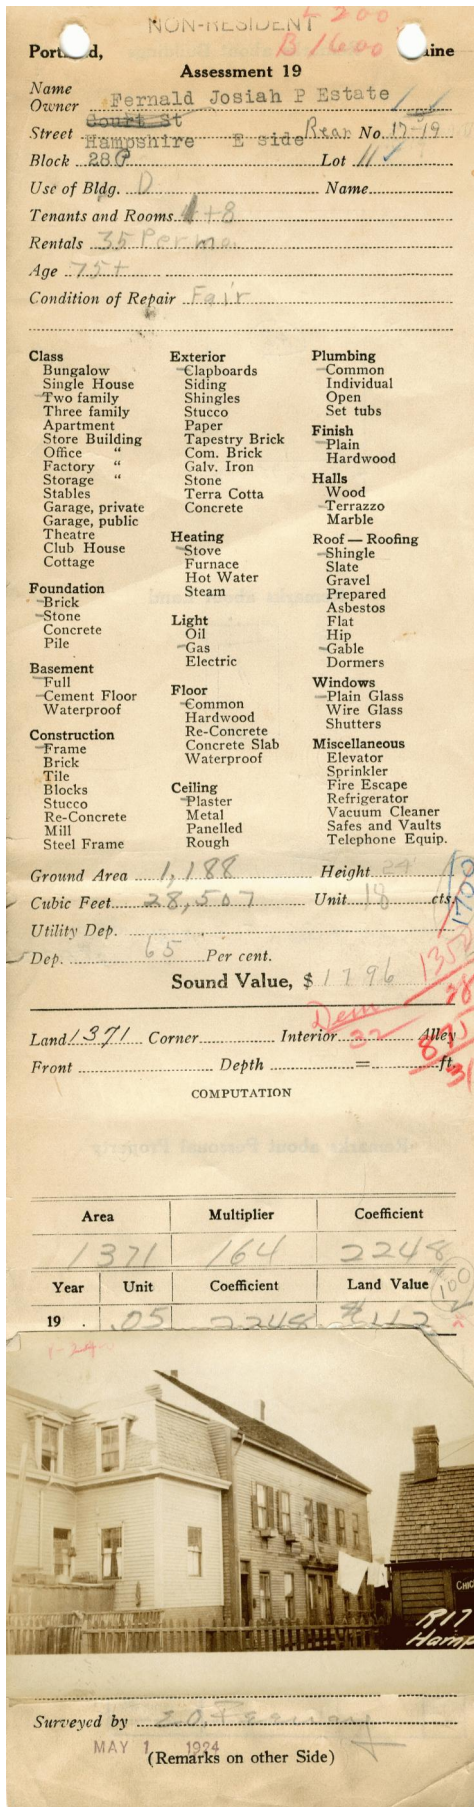 NON-RESIDENT
L 200
B 1600
Portland, Maine
Assessment 19
Name
Owner Fernald Josiah P Estate
Court St
Street Hampshire E side Rear No. 17-19
Block 28P Lot 11
Use of Bldg. D Name
Tenants and Rooms +8
Rentals 35 Per mo.
Age 75+
Condition of Repair Fair
Class
Bungalow
Single House
Two family
Three family
Apartment
Store Building
Office "
Factory "
Storage "
Stables
Garage, private
Garage, public
Theatre
Club House
Cottage
Foundation
Brick
Stone
Concrete
Pile
Basement
Full
Cement Floor
Waterproof
Construction
Frame
Brick
Tile
Blocks
Stucco
Re-Concrete
Mill
Steel Frame
Exterior
Clapboards
Siding
Shingles
Stucco
Paper
Tapestry Brick
Com. Brick
Galv. Iron
Stone
Terra Cotta
Concrete
Heating
Stove
Furnace
Hot Water
Steam
Light
Oil
Gas
Electric
Floor
Common
Hardwood
Re-Concrete
Concrete Slab
Waterproof
Ceiling
Plaster
Metal
Panelled
Rough
Plumbing
Common
Individual
Open
Set tubs
Finish
Plain
Hardwood
Halls
Wood
Terrazzo
Marble
Roof — Roofing
Shingle
Slate
Gravel
Prepared
Asbestos
Flat
Hip
Gable
Dormers
Windows
Plain Glass
Wire Glass
Shutters
Miscellaneous
Elevator
Sprinkler
Fire Escape
Refrigerator
Vacuum Cleaner
Safes and Vaults
Telephone Equip.
Ground Area 1,188 Height 24'
Cubic Feet 28,507 Unit 18 cts.
1700
Utility Dep.
Dep. 65 Per cent.
Sound Value, $ 1796
1352
Land 1371 Corner Interior Alley
Front Depth = ft.
COMPUTATION
Area Multiplier Coefficient
1371 164 2248
Year Unit Coefficient Land Value
$100
19 . .05 2248 $112
R17
Hamp
Surveyed by
MAY 1 1924
(Remarks on other Side)